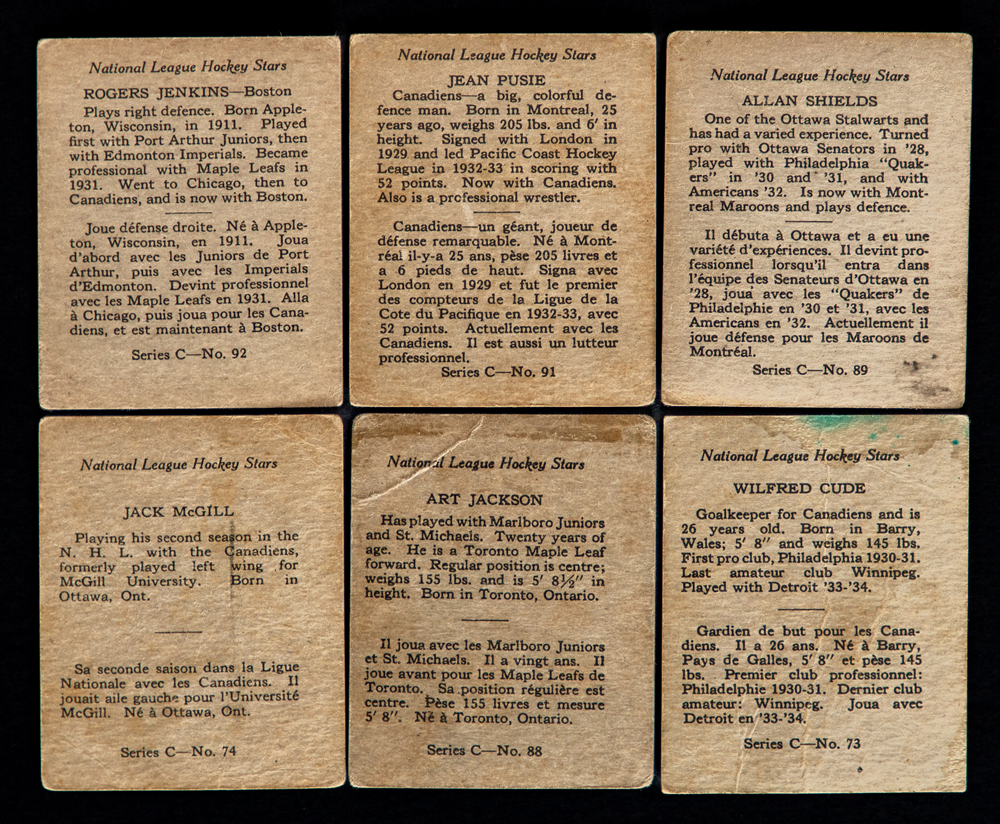 National League Hockey Stars
ROGERS JENKINS—Boston
Plays right defence. Born Apple-
ton, Wisconsin, in 1911. Played
first with Port Arthur Juniors, then
with Edmonton Imperials. Became
professional with Maple Leafs in
1931. Went to Chicago, then to
Canadiens, and is now with Boston.
Joue défense droite. Né à Apple-
ton, Wisconsin, en 1911. Joua
d'abord avec les Juniors de Port
Arthur, puis avec les Imperials
d'Edmonton. Devint professionnel
avec les Maple Leafs en 1931. Alla
à Chicago, puis joua pour les Cana-
diens, et est maintenant à Boston.
Series C—No. 92
National League Hockey Stars
JEAN PUSIE
Canadiens—a big, colorful de-
fence man. Born in Montreal, 25
years ago, weighs 205 lbs. and 6' in
height. Signed with London in
1929 and led Pacific Coast Hockey
League in 1932-33 in scoring with
52 points. Now with Canadiens.
Also is a professional wrestler.
Canadiens—un géant, joueur de
défense remarquable. Né à Mont-
réal il-y-a 25 ans, pèse 205 livres et
a 6 pieds de haut. Signa avec
London en 1929 et fut le premier
des compteurs de la Ligue de la
Cote du Pacifique en 1932-33, avec
52 points. Actuellement avec les
Canadiens. Il est aussi un lutteur
professionnel.
Series C—No. 91
National League Hockey Stars
ALLAN SHIELDS
One of the Ottawa Stalwarts and
has had a varied experience. Turned
pro with Ottawa Senators in '28,
played with Philadelphia "Quak-
ers" in '30 and '31, and with
Americans '32. Is now with Mont-
real Maroons and plays defence.
Il débuta à Ottawa et a eu une
variété d'expériences. Il devint pro-
fessionnel lorsqu'il entra dans
l'équipe des Senateurs d'Ottawa en
'28, joua avec les "Quakers" de
Philadelphie en '30 et '31, avec les
Americans en '32. Actuellement il
joue défense pour les Maroons de
Montréal.
Series C—No. 89
National League Hockey Stars
JACK McGILL
Playing his second season in the
N. H. L. with the Canadiens,
formerly played left wing for
McGill University. Born in
Ottawa, Ont.
Sa seconde saison dans la Ligue
Nationale avec les Canadiens. Il
jouait aile gauche pour l'Université
McGill. Né à Ottawa, Ont.
Series C—No. 74
National League Hockey Stars
ART JACKSON
Has played with Marlboro Juniors
and St. Michaels. Twenty years of
age. He is a Toronto Maple Leaf
forward. Regular position is centre;
weighs 155 lbs. and is 5' 8½" in
height. Born in Toronto, Ontario.
Il joua avec les Marlboro Juniors
et St. Michaels. Il a vingt ans. Il
joue avant pour les Maple Leafs de
Toronto. Sa position régulière est
centre. Pèse 155 livres et mesure
5' 8". Né à Toronto, Ontario.
Series C—No. 88
National League Hockey Stars
WILFRED CUDE
Goalkeeper for Canadiens and is
26 years old. Born in Barry,
Wales; 5' 8" and weighs 145 lbs.
First pro club, Philadelphia 1930-31.
Last amateur club Winnipeg.
Played with Detroit '33-'34.
Gardien de but pour les Cana-
diens. Il a 26 ans. Né à Barry,
Pays de Galles, 5' 8" et pèse 145
lbs. Premier club professionnel:
Philadelphie 1930-31. Dernier club
amateur: Winnipeg. Joua avec
Detroit en '33-'34.
Series C—No. 73